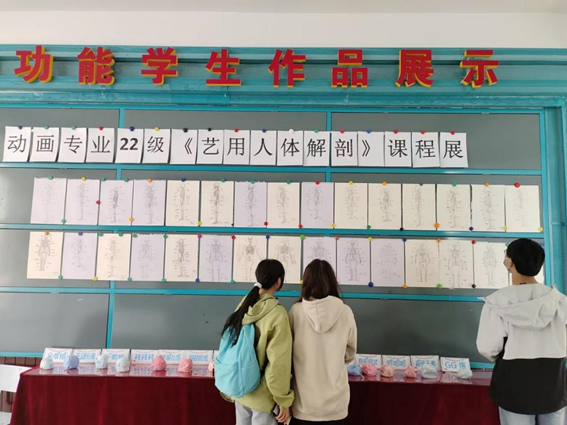 功能学生作品展示
动画专业22级《艺用人体解剖》课程展